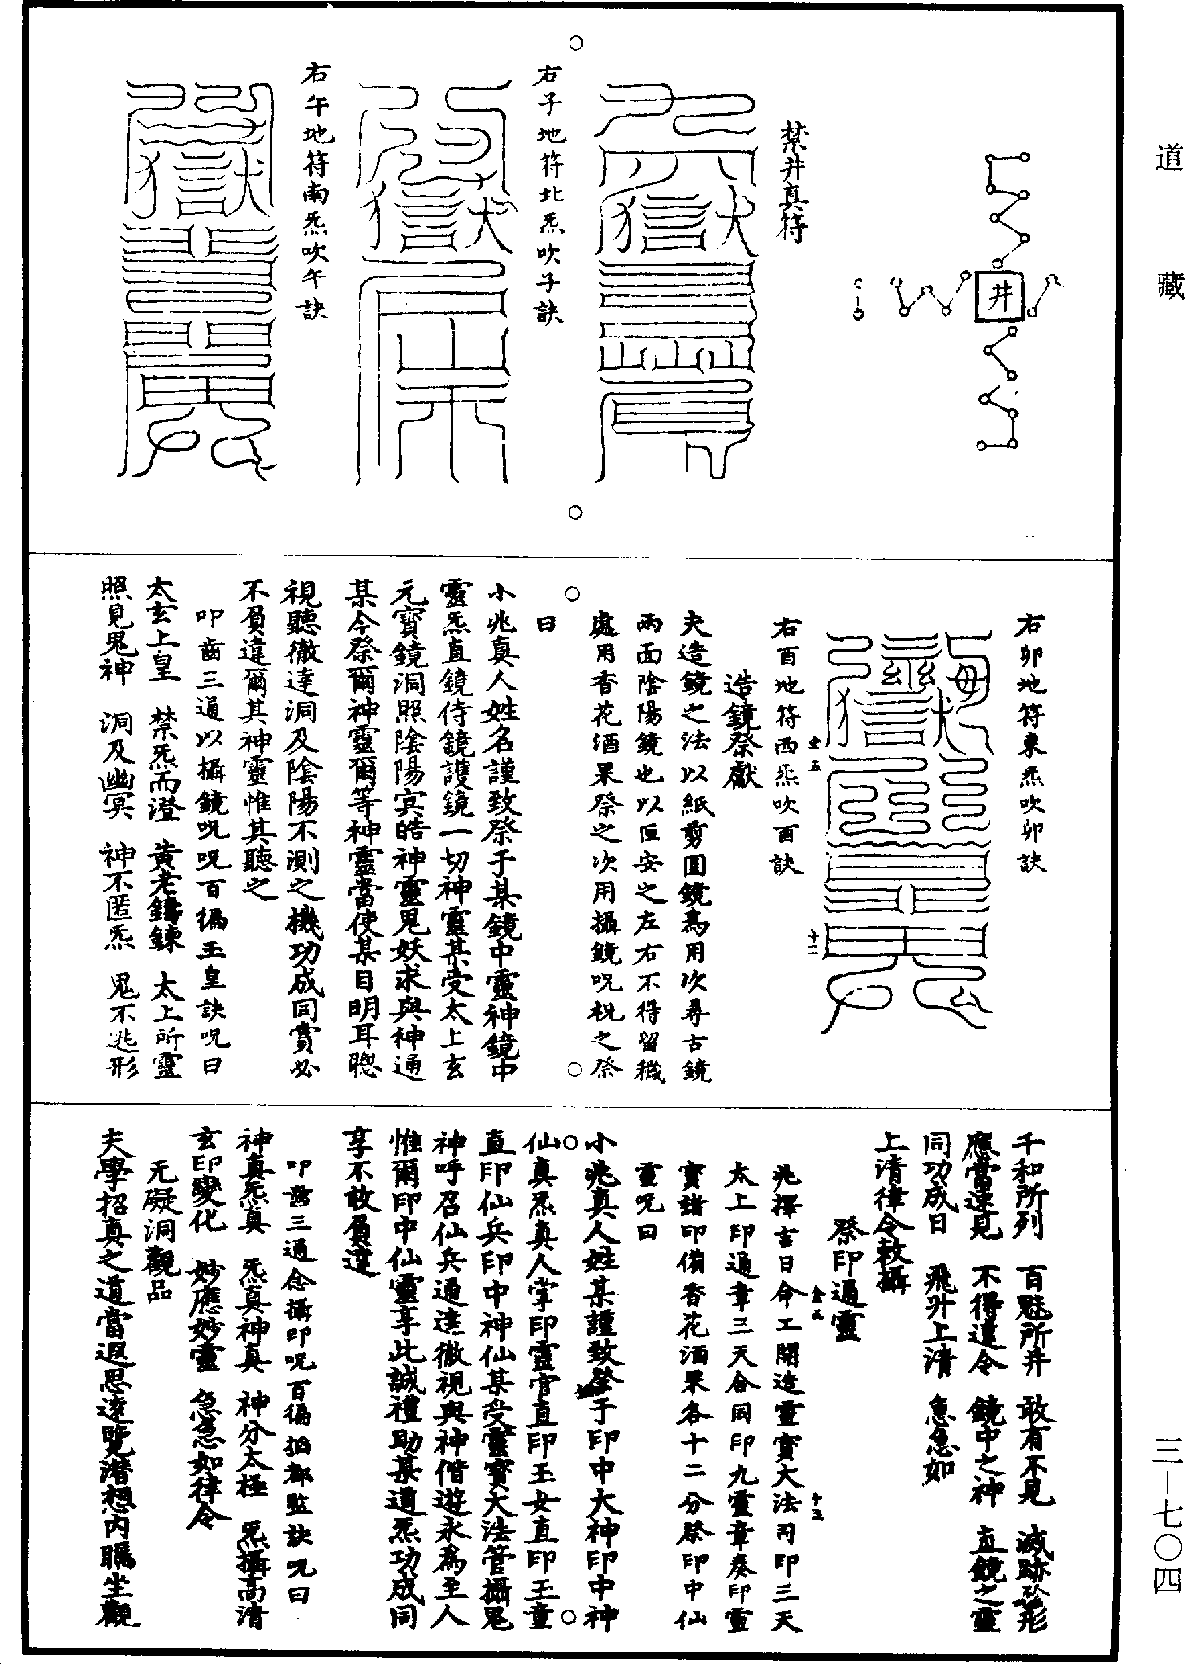 道藏
井
禁井真符
右子地符北炁吹子訣
右午地符南炁吹午訣
右卯地符東炁吹卯訣
右酉地符西炁吹酉訣
造鏡祭獻
夫造鏡之法以紙剪圓鏡爲用次尋古鏡
兩面陰陽鏡也以匣安之左右不得留穢
處用香花酒果祭之次用攝鏡呪祝之祭
曰
小兆真人姓名謹致祭于某鏡中靈神鏡中
靈炁直鏡侍鏡護鏡一切神靈某受太上玄
元寶鏡洞照陰陽㝠皓神靈鬼妖求與神通
某今祭爾神靈爾等神靈當使某目明耳聰
視聽徹達洞及陰陽不測之機功成同賞必
不負違爾其神靈惟其聽之
叩齒三通以攝鏡呪呪百徧玉皇訣呪曰
太玄上皇 禁炁而澄 黄老鑄鍊 太上所靈
照見鬼神 洞及幽冥 神不匿炁 鬼不逃形
千和所列 百魅所并 敢有不見 滅跡於形
應當速見 不得違令 鏡中之神 直鏡之靈
同功成日 飛升上清 急急如
上清律令敕攝
祭印通靈
兆擇吉日命工開造靈寶大法司印三天
太上印通章三天合同印九靈章奏印靈
寶諸印備香花酒果各十二分祭印中仙
靈呪曰
小兆真人姓某謹致祭于印中大神印中神
仙真炁真人掌印靈官直印玉女直印玉童
直印仙兵印中神仙某受靈寶大法管攝鬼
神呼召仙兵通達徹視與神偕遊永爲至人
惟爾印中仙靈享此誠禮助某道炁功成同
享不敢負違
叩齒三通念攝印呪百徧掐都監訣呪曰
神真炁真 炁真神真 神分太極 炁攝高清
玄印變化 妙應妙靈 急急如律令
无礙洞觀品
夫學招真之道當遐思遠覽潜想内矚坐觀
三—七〇四